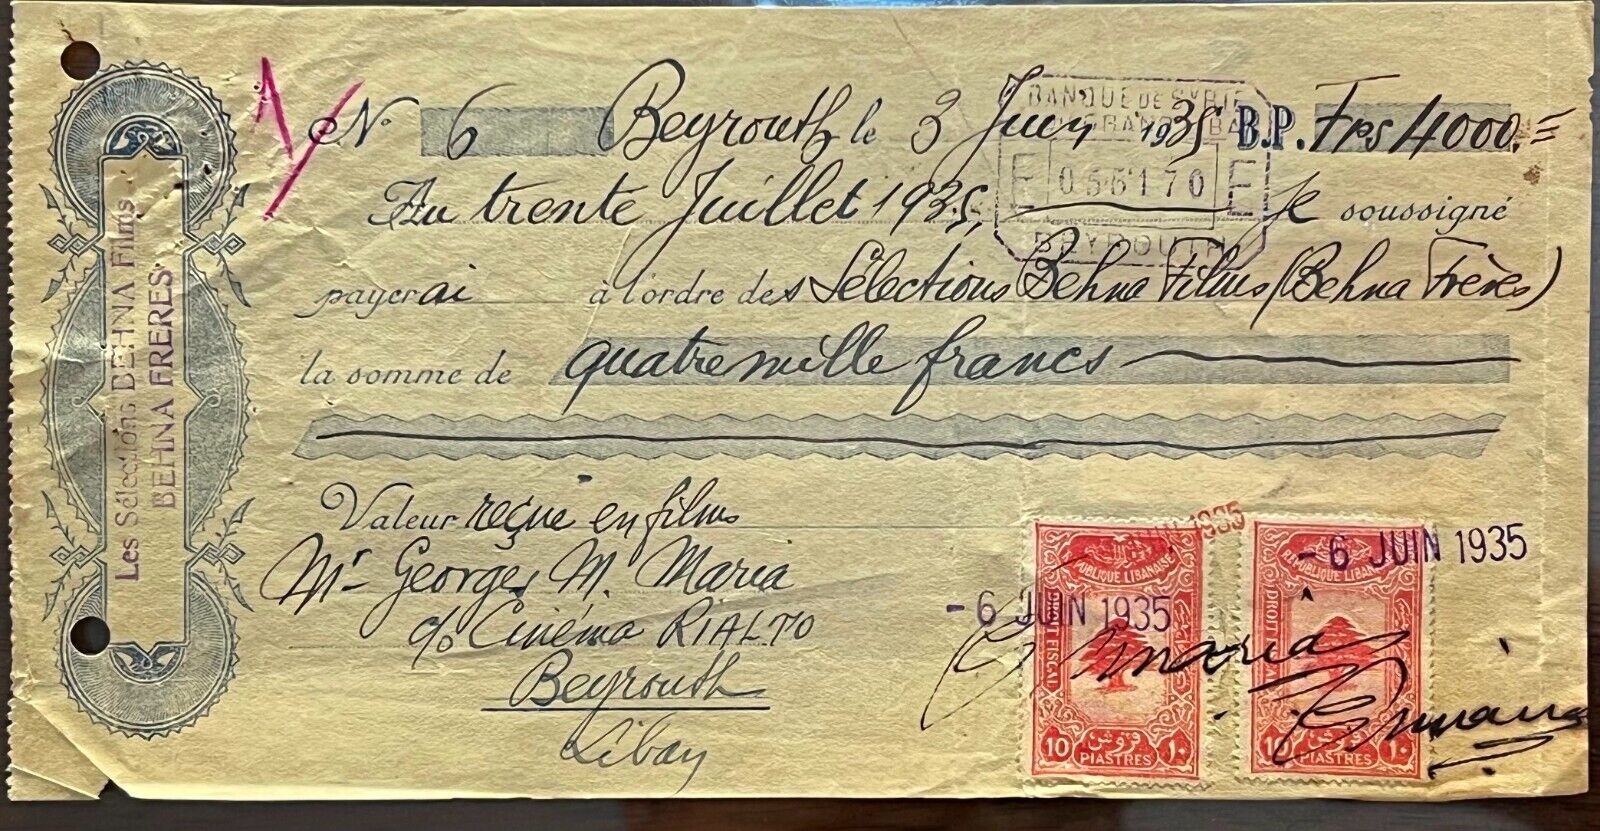 Les Sélections BEHNA Films
BEHNA FRERES
No 6 Beyrouth le 3 Juin 1935 B.P. Frs 4000.=
Au trente Juillet 1935, Je soussigné
payerai à l'ordre des Sélections Behna Films (Behna Frères)
la somme de quatre mille francs
Valeur reçue en films
Mr Georges M. Maria
c/o Cinéma RIALTO
Beyrouth
Liban
BANQUE DE SYRIE
E 055170 E
BEYROUTH
JUIN 1935
-6 JUIN 1935
-6 JUIN 1935
REPUBLIQUE LIBANAISE
DROIT FISCAL
10 قروش ١٠
PIASTRES
REPUBLIQUE LIBANAISE
DROIT FISCAL
10 قروش ١٠
PIASTRES
G Maria